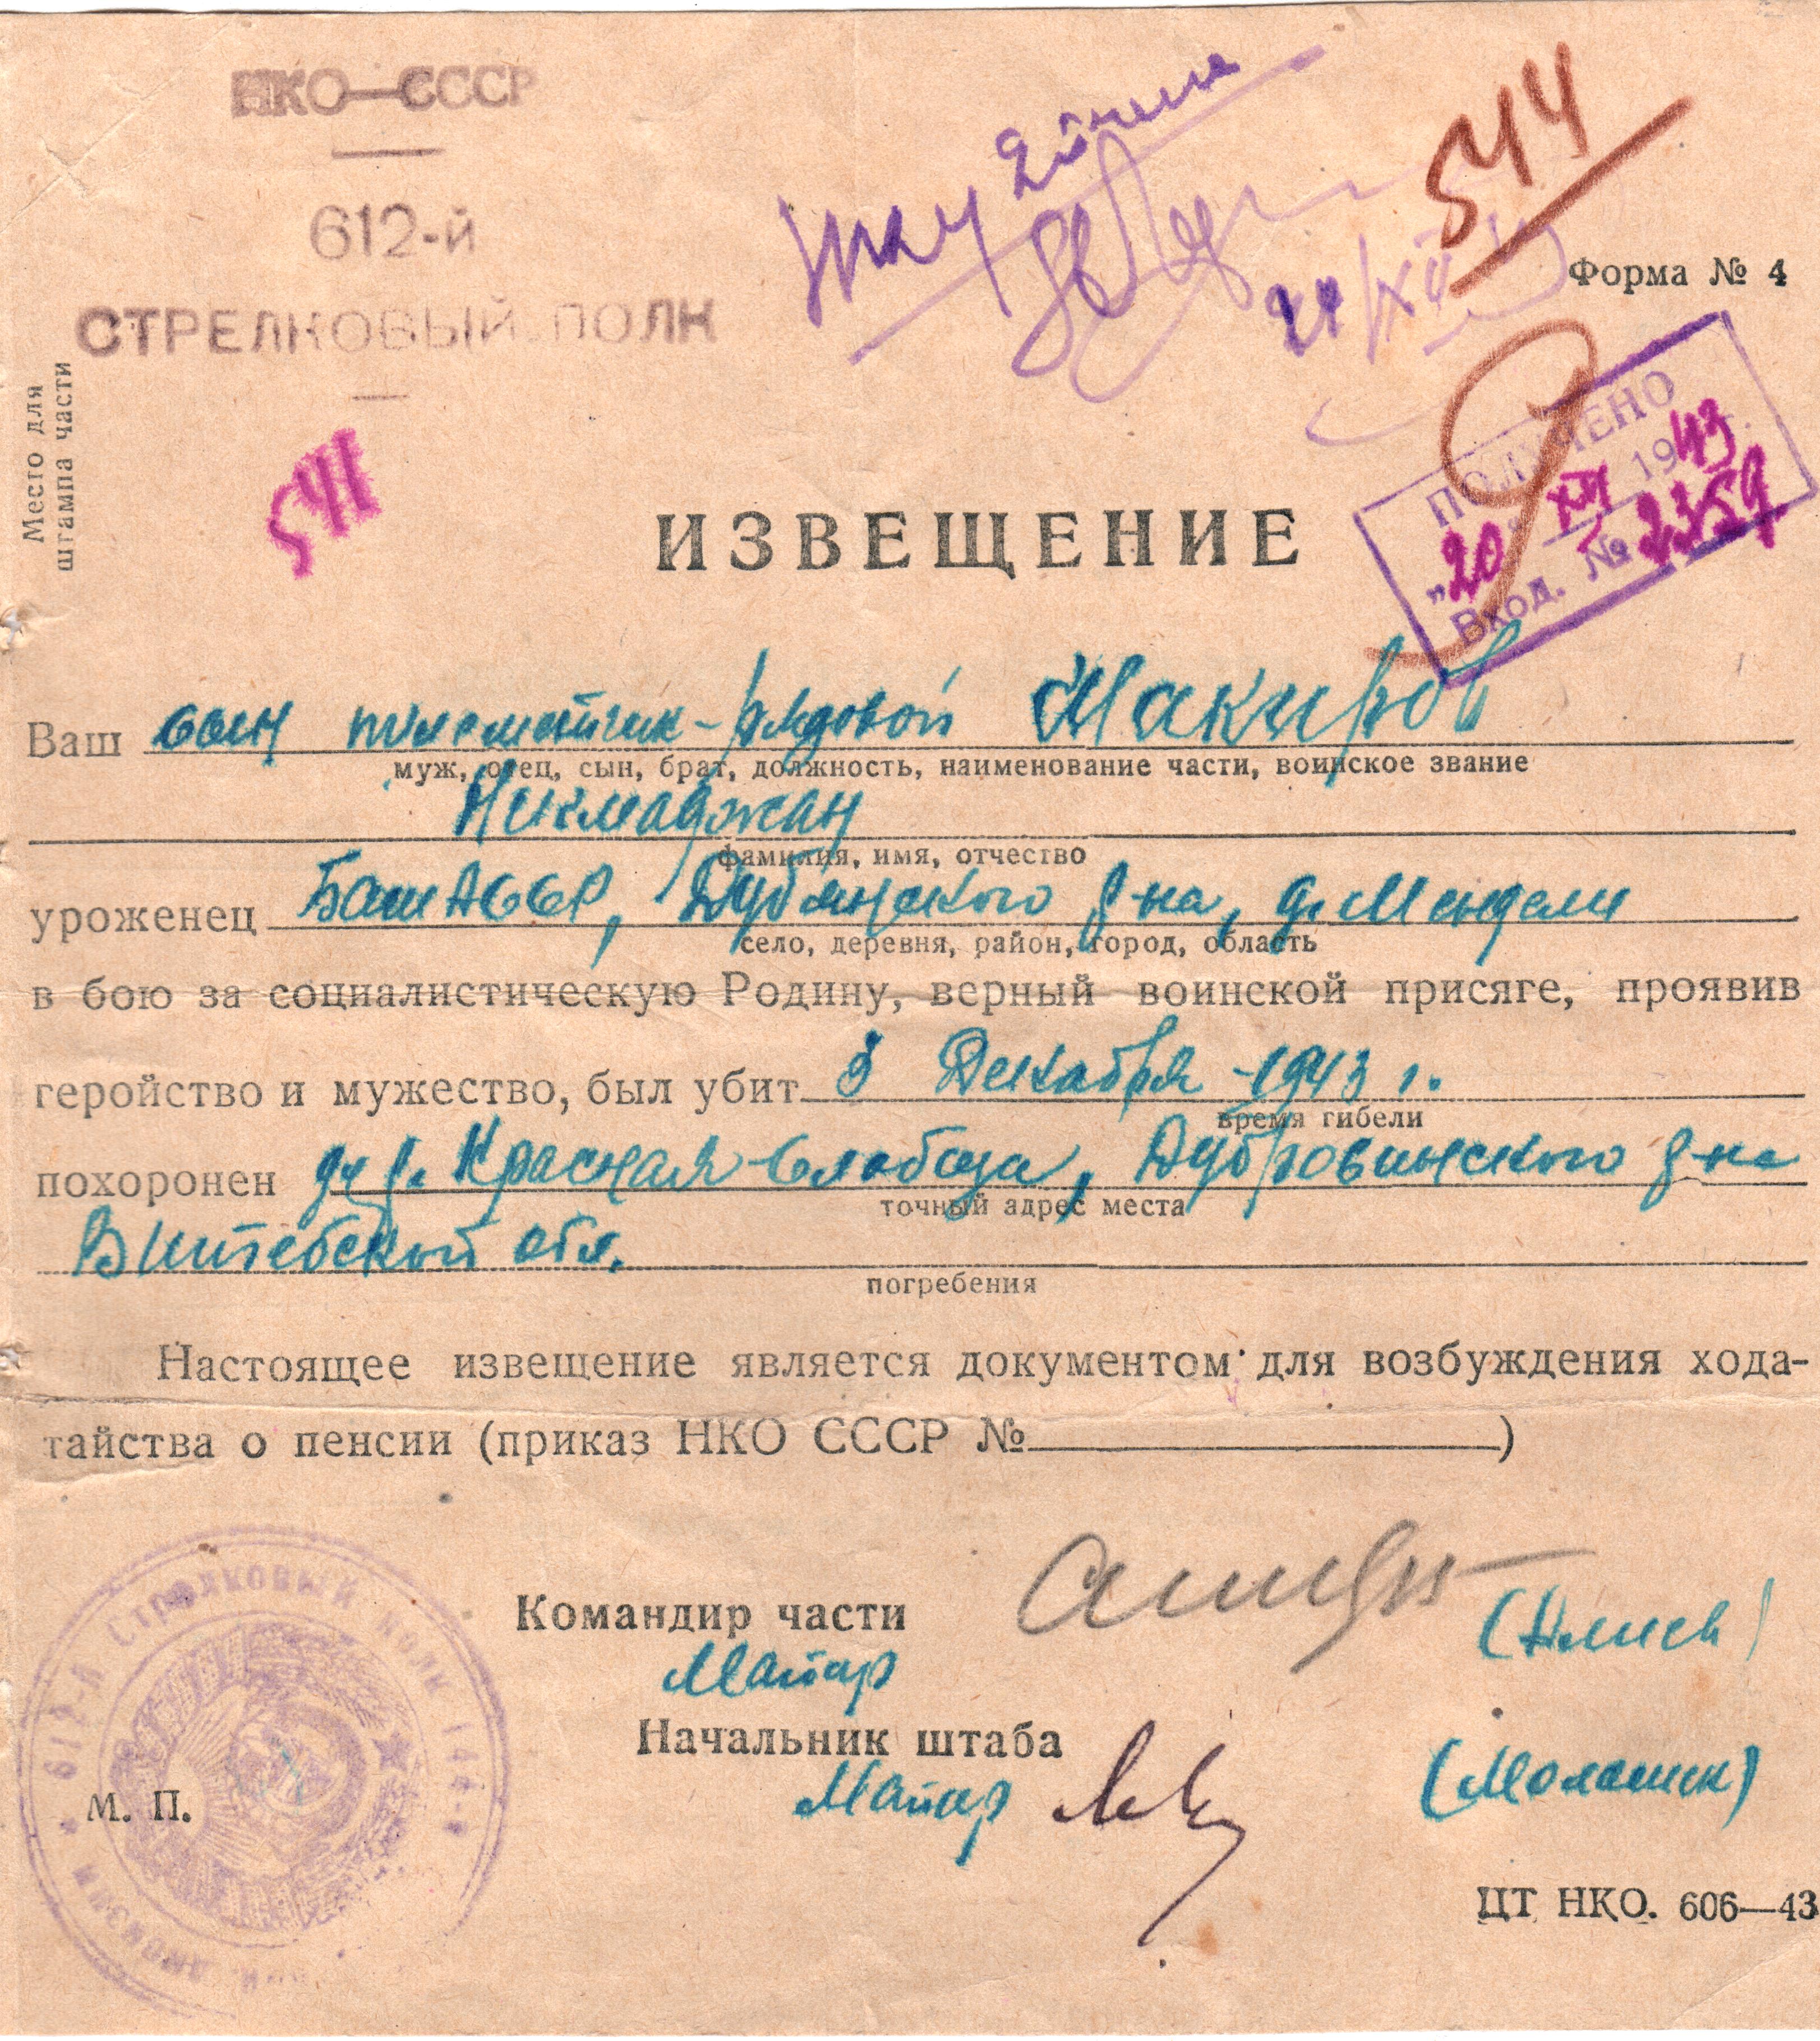 НКО—СССР
612-й
СТРЕЛКОВЫЙ ПОЛК
Место для
штампа части
544
Форма № 4
541
ПОЛУЧЕНО
„20 XII 1943 г.
Вход. № 2359
ИЗВЕЩЕНИЕ
Ваш сын пулеметчик-рядовой Шакиров
муж, отец, сын, брат, должность, наименование части, воинское звание
Никмаджан
фамилия, имя, отчество
уроженец БашАССР, р-на, д.
село, деревня, район, город, область
в бою за социалистическую Родину, верный воинской присяге, проявив
геройство и мужество, был убит 3 Декабря 1943 г.
время гибели
похоронен Красная-Слобода, Дубровинского р-на
точный адрес места
Витебской обл.
погребения
Настоящее извещение является документом для возбуждения хода-
тайства о пенсии (приказ НКО СССР № )
Командир части
Майор
Начальник штаба
Майор
М. П.
612-й СТРЕЛКОВЫЙ ПОЛК 144-й ДИВИЗИИ
ЦТ НКО. 606—43